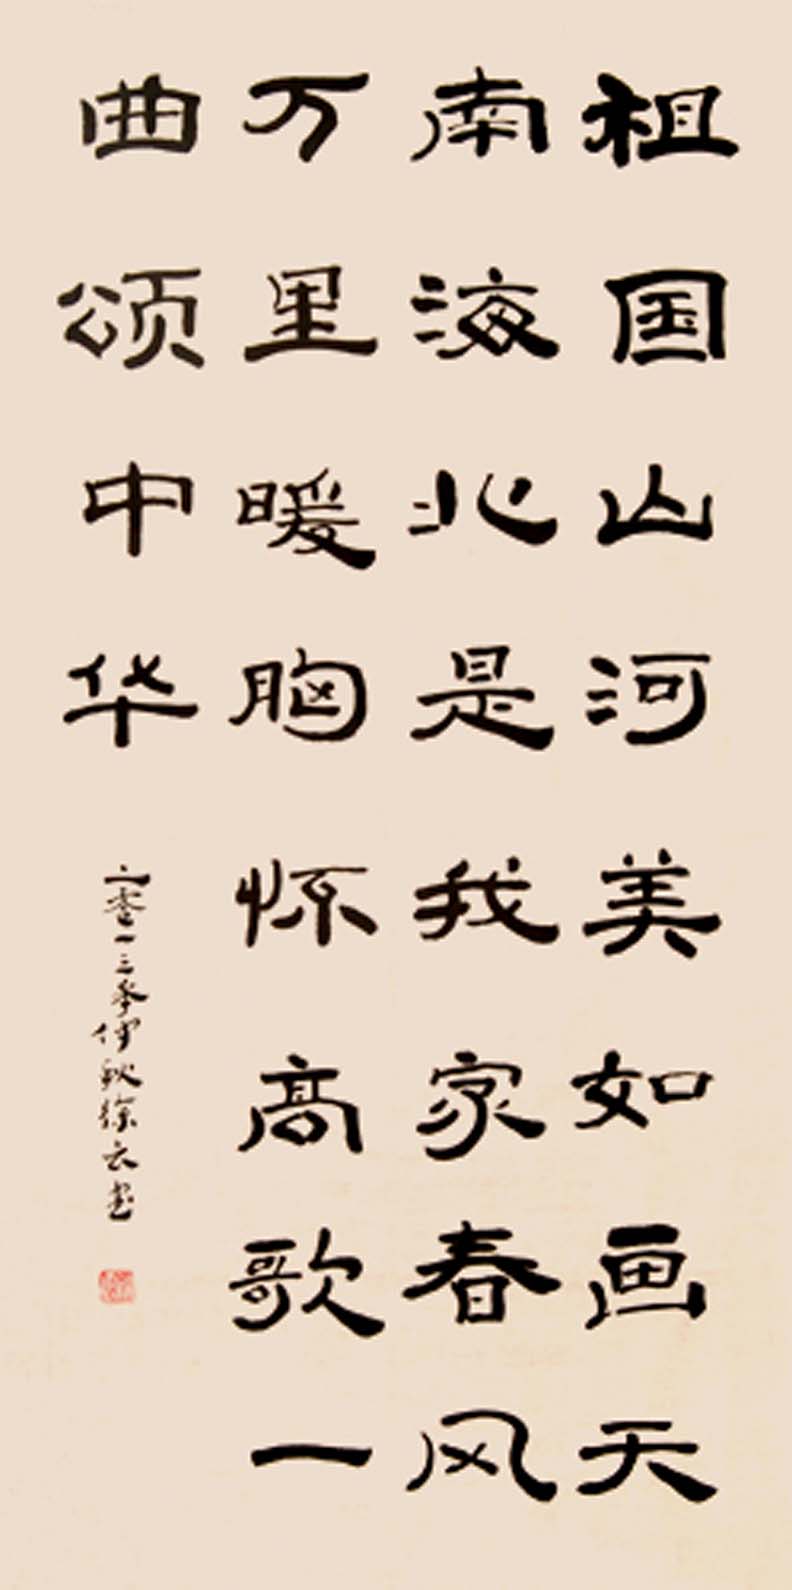 祖国山河美如画天
南海北是我家春风
万里暖胸怀高歌一
曲颂中华
二零一三年仲秋徐云书